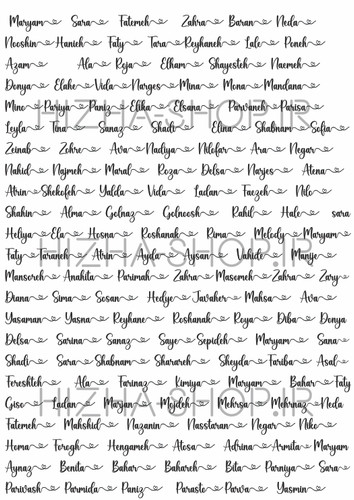 Maryam Sara Fatemeh Zahra Baran Neda
Nooshin Hanieh Faty Tara Reyhaneh Lale Poneh
Azam Ala Roja Elham Shayesteh Naemeh
Donya Elahe Vida Narges Mina Mona Mandana
Mino Pariya Paniz Elika Elsana Parvaneh Parisa
HIZHA-SHOP.IR
Leyla Tina Sanaz Shadi Elina Shabnam Sofia
Zeinab Zohre Ava Nadiya Nilofar Ara Negar
Nahid Najmeh Maral Roza Delsa Narjes Atena
Atrin Shekofeh Yalda Vida Ladan Faezeh Nilo
Shahin Alma Golnaz Golnoosh Rahil Hale sara
Heliya Ela Hosna Roshanak Rima Melody Maryam
HIZHA-SHOP.IR
Faty Taraneh Atrin Ayda Aysan Vahide Manije
Mansoreh Anahita Parimah Zahra Masomeh Zahra Zary
Diana Sima Sosan Hedye Javaher Mahsa Ava
Yasaman Yasna Reyhane Roshanak Roya Diba Donya
Delsa Sarina Sanaz Saye Sepideh Maryam Sana
Shadi Sara Shabnam Sharareh Sheyda Fariba Asal
Fereshteh Ala Farinaz Kimiya Maryam Bahar Faty
Giso Ladan Marjan Mojdeh Mehrsa Mehrnaz Neda
HIZHA-SHOP.IR
Fatemeh Mahshid Nazanin Nasstaran Negar Niko
Homa Forogh Hengameh Atosa Adrina Armita Maryam
Aynaz Benita Bahar Bahareh Bita Parniya Sara
Parivash Parmida Paniz Parasto Parva Yasmin